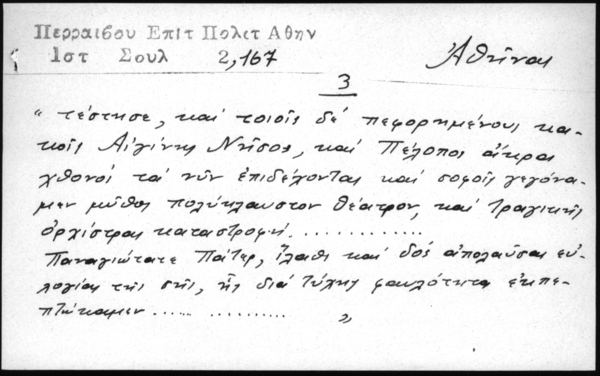 Περραιβου Επιτ Πολετ Αθην
Ιστ Σουλ 2,167
Ἀθῆναι
3
" τέστησε, καί τοιοῖς δέ πεφορημένους κα-
κοῖς Αἰγίνης Νῆσος, καί Πέλοπος ἄκραι
χθονοί τά νῦν ἐπιδέχονται καί σοφοῖς γεγόνα-
μεν μῦθος πολύκλαυστον θέατρον, καί τραγικῆς
ὀρχίστρας καταστροφή............
Παναγιώτατε Πάτερ, ἵλαθι καί δός ἀπολαῦσαι εὐ-
λογίας τῆς σῆς, ἧς διά τύχης φαυλότητα ἐκπε-
πτώκαμεν ...... .......... "